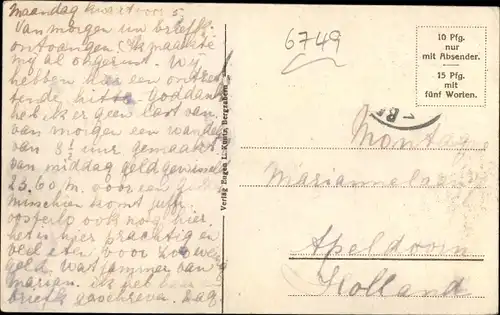 Maandag kwart voor 5
Van morgen uw briefk.
ontvangen (ik maakte
mij al ongerust. Wij
hebben hier een ontzet
tende hitte. Goddank
heb ik er geen last van
van morgen een wandel
van 3½ uur gemaakt
van middag geld gewisseld
23,60 m. voor een
misschien komt juffr.
oosterlo ook nog hier
het is hier prachtig en
veel eten voor zoo weinig
geld. Wat jammer van
marian. ik heb een
briefk geschreven. Dag
Verlag Eugen L. Kuntz, Bergzabern
6749
10 Pfg.
nur
mit Absender.
15 Pfg.
mit
fünf Worten.
Montag
Marianne
Apeldoorn
Holland